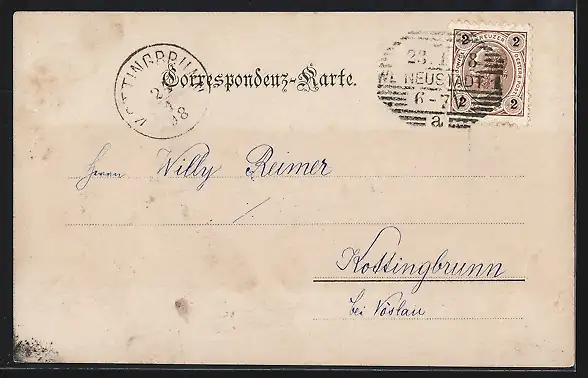 2 KREUZER 2
2 2
23. 1 8
Wr. NEUSTADT 1
6-7
a
KOTTINGBRUNN
98
Correspondenz-Karte.
Herrn Willy Reimer
Kottingbrunn
bei Vöslau